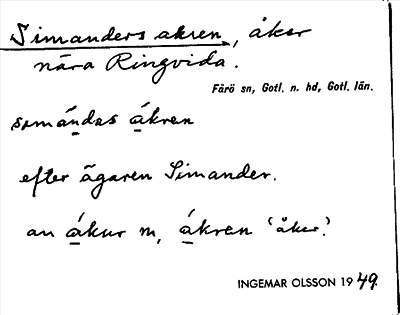 Simanders akren, åker
nära Ringvida.
Fårö sn, Gotl. n. hd, Gotl. län.
somándas ákren
efter ägaren Simander.
an ákur m, ákren 'åker'.
INGEMAR OLSSON 1949.